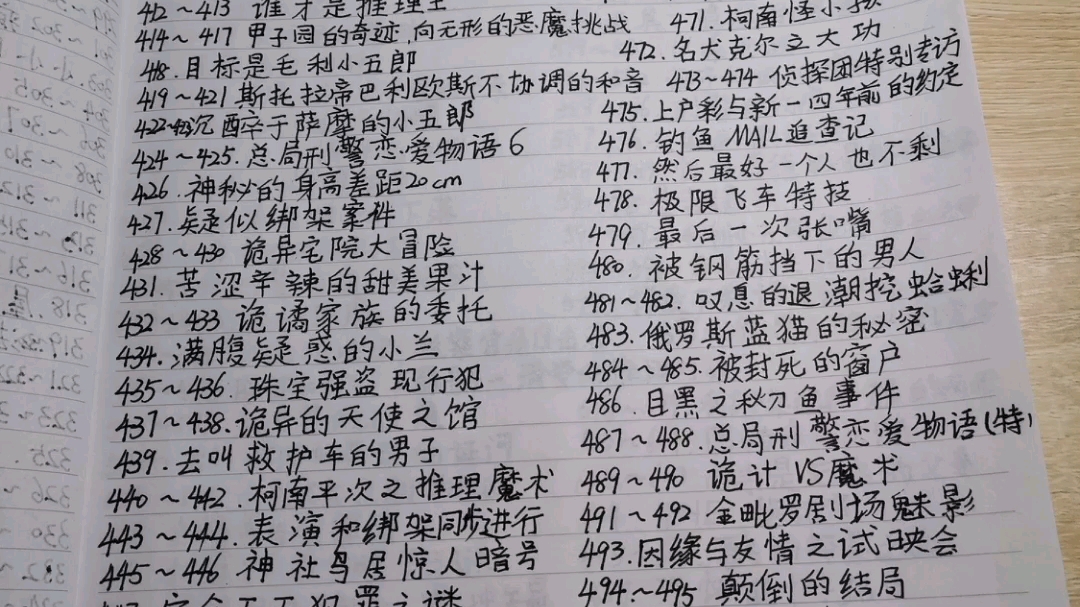 412~413 谁才是推理王
414~417 甲子园的奇迹,向无形的恶魔挑战
418.目标是毛利小五郎
419~421 斯托拉帝巴利欧斯不协调的和音
沉醉于萨摩的小五郎
424~425.总局刑警恋爱物语6
426.神秘的身高差距20cm
427.疑似绑架案件
428~430 诡异宅院大冒险
431.苦涩辛辣的甜美果汁
432~433 诡谲家族的委托
434.满腹疑惑的小兰
435~436.珠宝强盗现行犯
437~438.诡异的天使之馆
439.去叫救护车的男子
440~442.柯南平次之推理魔术
443~444.表演和绑架同步进行
445~446.神社鸟居惊人暗号
犯罪之谜
471.柯南怪小孩
472.名犬克尔立大功
473~474 侦探团特别专访
475.上户彩与新一四年前的约定
476.钓鱼MAIL追查记
477.然后最好一个人也不剩
478.极限飞车特技
479.最后一次张嘴
480.被钢筋挡下的男人
481~482.叹息的退潮挖蛤蜊
483.俄罗斯蓝猫的秘密
484~485.被封死的窗户
486.目黑之秋刀鱼事件
487~488.总局刑警恋爱物语(特)
489~490 诡计VS魔术
491~492 金毗罗剧场魅影
493.因缘与友情之试映会
494~495 颠倒的结局